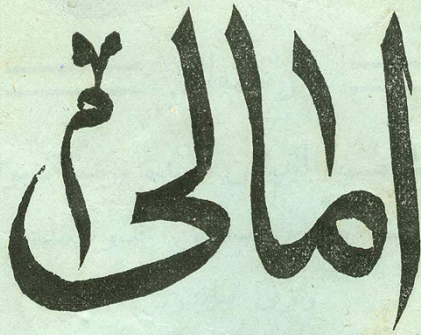 امالی